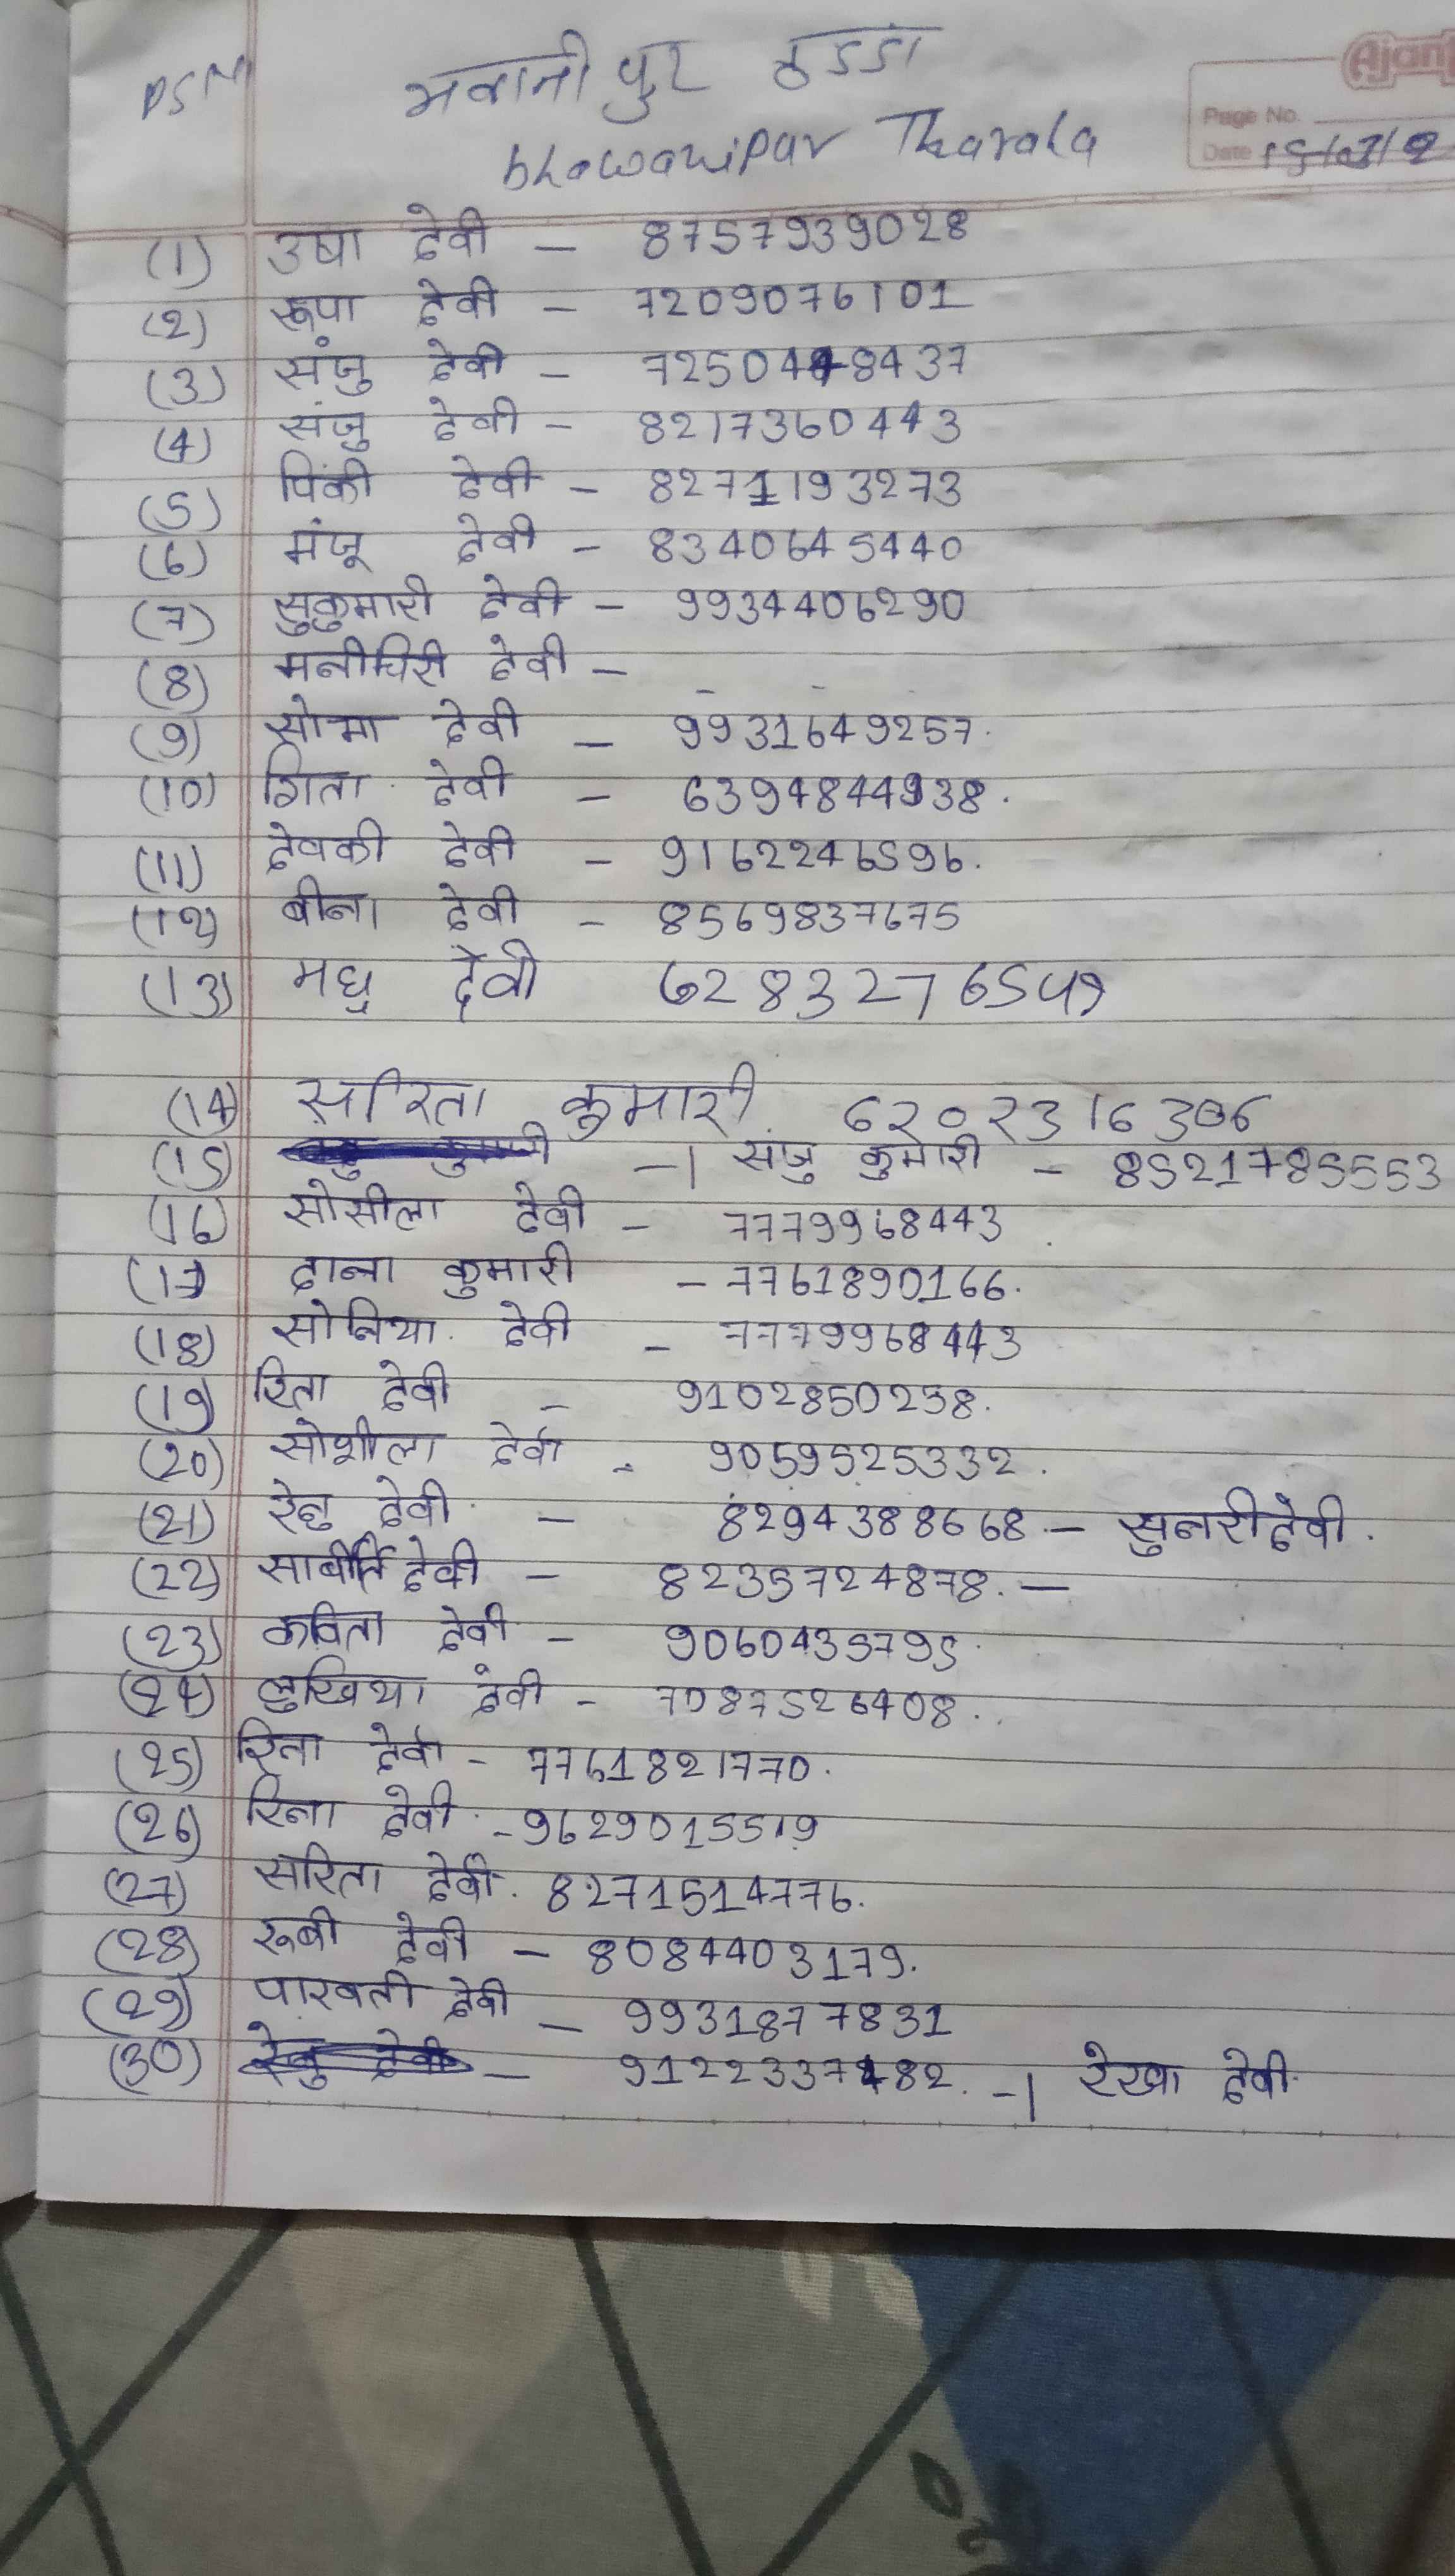 PSM
भवानीपुर ठडडा
bhawanipur Tharala
Ajant
Page No.
Date
(1) उषा देवी — 8757939028
(2) रूपा देवी — 7209076101
(3) संजु देवी — 7250448437
(4) संजु देवी — 8217360443
(5) पिंकी देवी — 8271193273
(6) मंजू देवी — 8340645440
(7) सुकुमारी देवी — 9934406290
(8) मनीचिरी देवी —
(9) सोमा देवी — 9931649257.
(10) गिता देवी — 6394844938.
(11) देवकी देवी — 9162246596.
(12) बीना देवी — 8569837675
(13) मधु देवी 6283276549
(14) सरिता कुमारी 6202316306
(15) —| संजु कुमारी — 8521785553
(16) सोसीला देवी — 7779968443
(17) दाना कुमारी — 7761890166.
(18) सोनिया देवी — 7779968443
(19) रिता देवी — 9102850238.
(20) सोशीला देवी - 9059525332.
(21) रेनु देवी — 8294388668 — सुनरी देवी.
(22) साबीर्ति देवी — 8235724878. —
(23) कविता देवी — 9060435795.
(24) लुखिया देवी - 7087526408.
(25) रिता देवी - 7761821770.
(26) रिना देवी - 9629015519
(27) सरिता देवी. 8271514776.
(28) रूबी देवी — 8084403179.
(29) पारवती देवी — 9931877831
(30) रेनु देवी — 9122337482. —| रेखा देवी